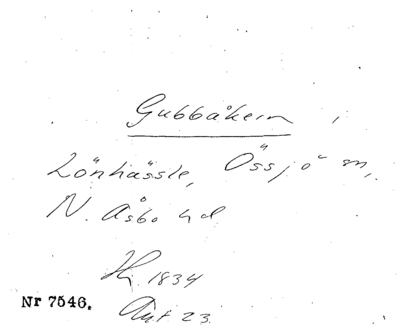 Gubbåkern i
Lönhässle, Össjö sn,
N. Åsbo hd
Hj. 1834
Ant 23.
Nr 7546.